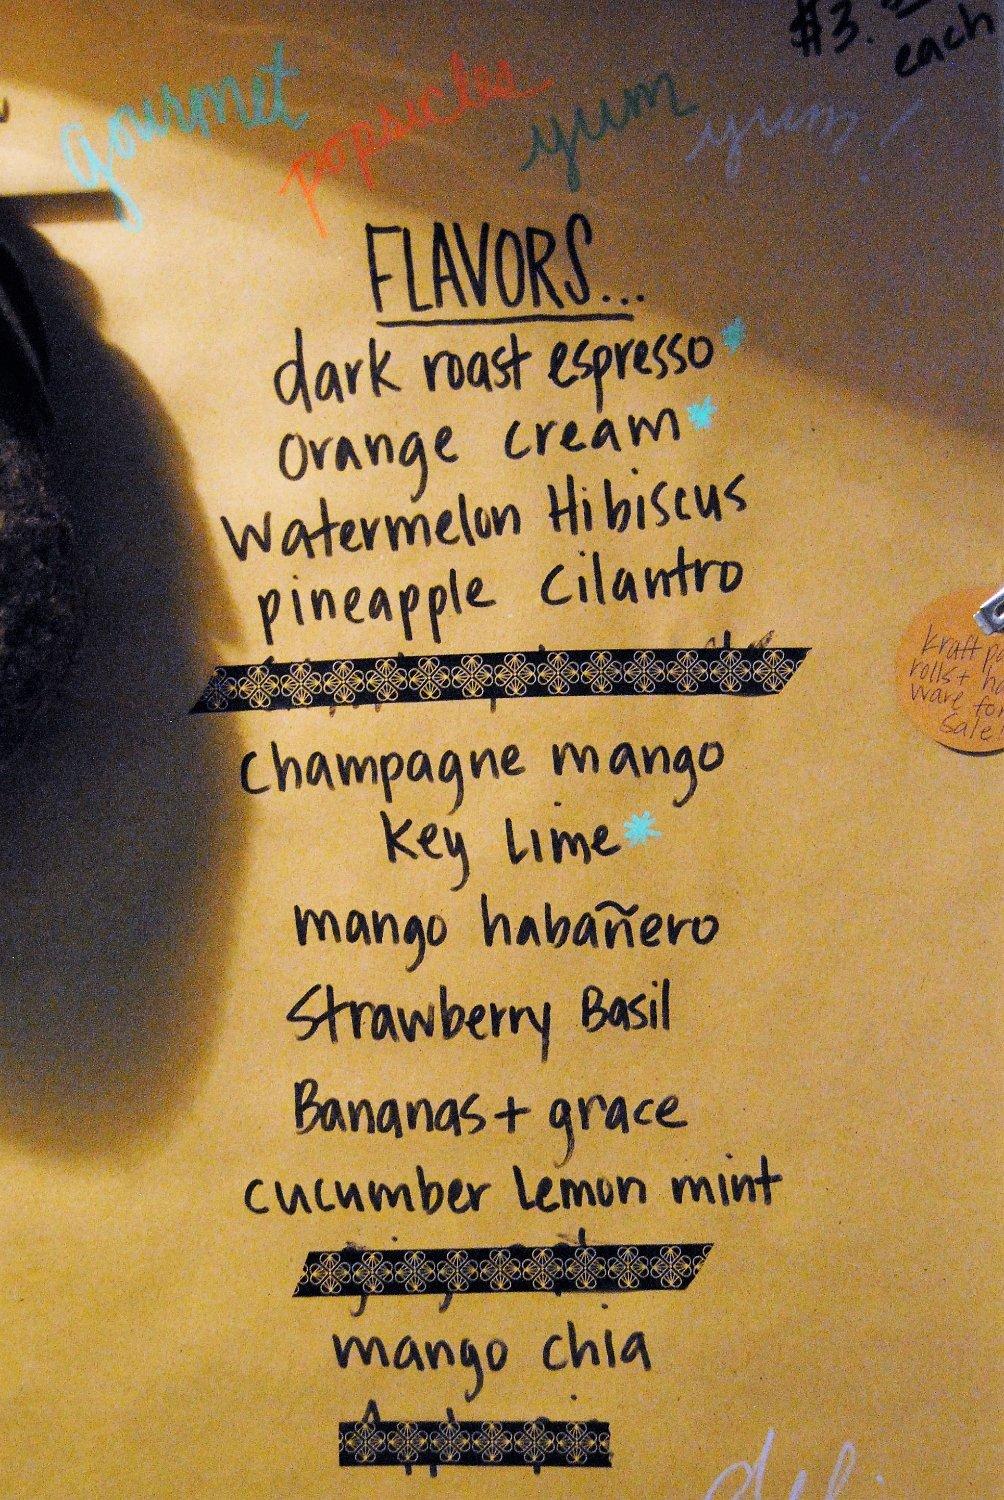 #3.
each
gourmet popsicles yum yum!
FLAVORS...
dark roast espresso*
orange cream*
Watermelon Hibiscus
pineapple Cilantro
champagne mango
key Lime*
mango habañero
Strawberry Basil
Bananas + grace
cucumber Lemon mint
mango chia
kraft
rolls +
ware for
sale!